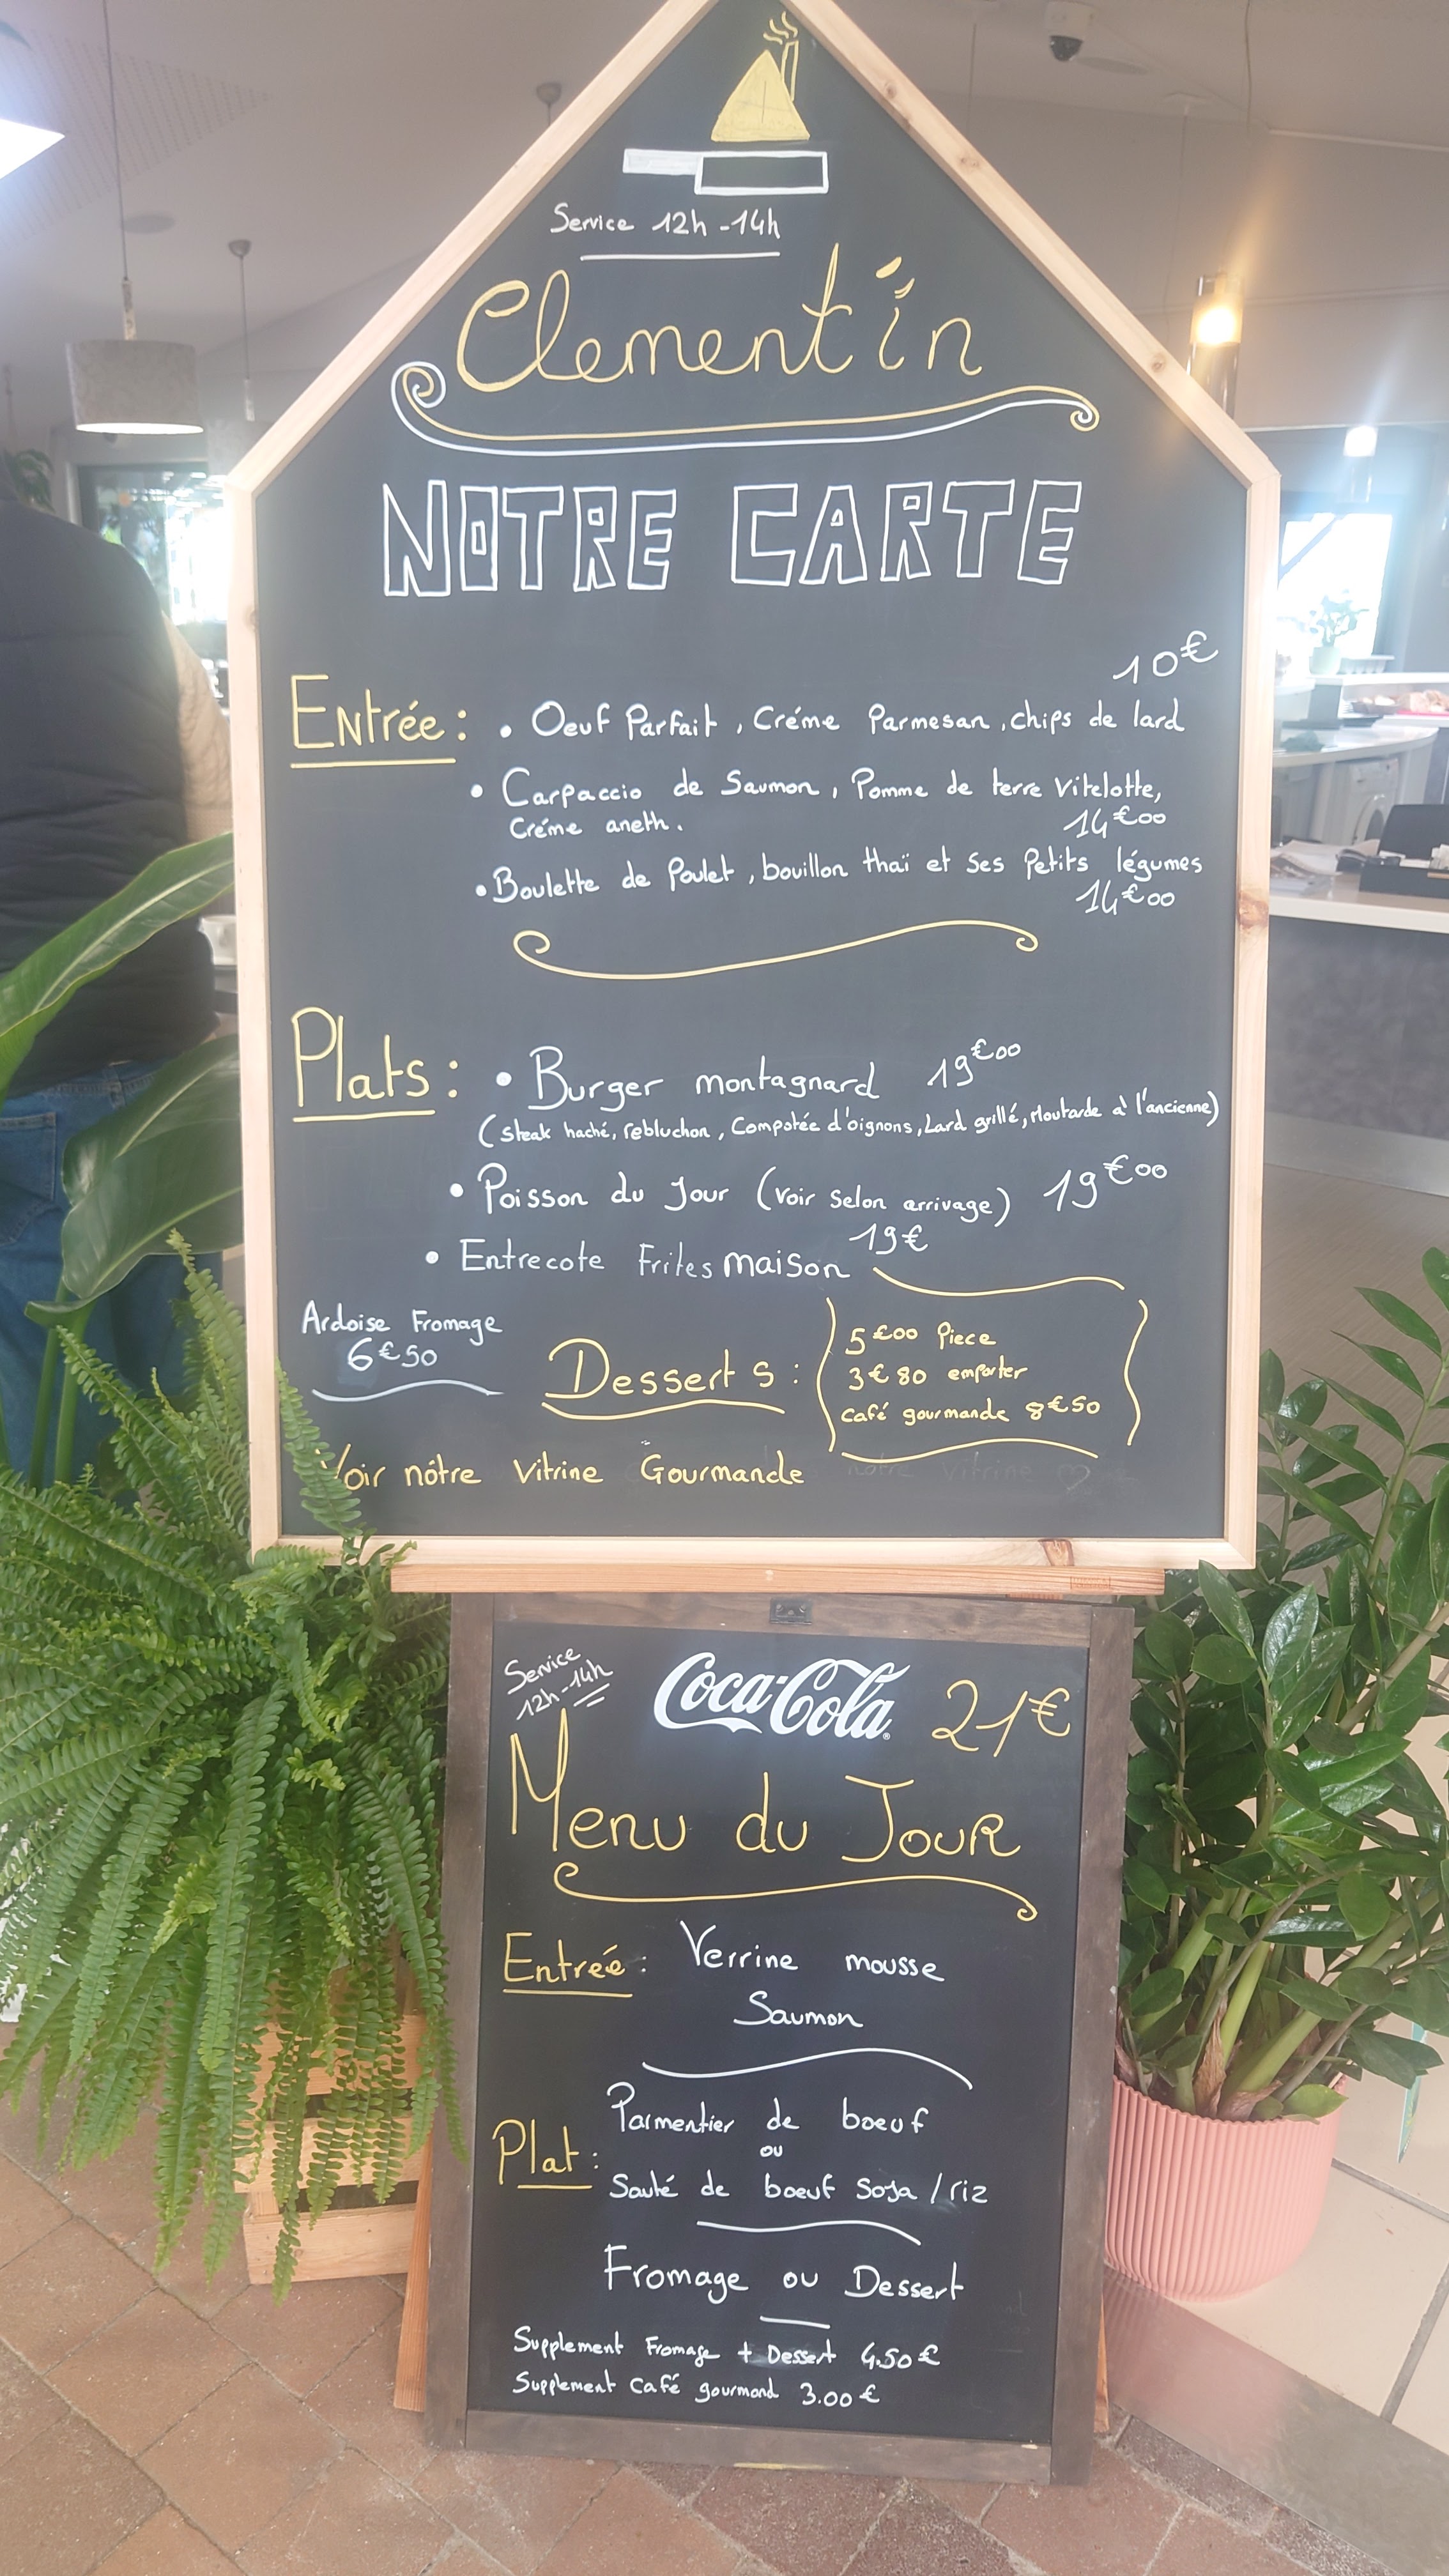 Service 12h-14h
Clement'in
NOTRE CARTE
10€
Entrée : • Oeuf Parfait, Créme Parmesan, chips de lard
• Carpaccio de Saumon, Pomme de terre Vitelotte,
Créme aneth. 14€00
• Boulette de Poulet, bouillon thaï et ses Petits légumes
14€00
Plats : • Burger montagnard 19€00
(steak haché, rebluchon, Compotée d'oignons, Lard grillé, Moutarde à l'ancienne)
• Poisson du Jour (voir selon arrivage) 19€00
19€
• Entrecote Frites maison
Ardoise Fromage
6€50
Desserts :
5€00 Piece
3€80 emporter
café gourmande 8€50
Voir nôtre Vitrine Gourmande
Service
12h-14h
Coca-Cola 21€
Menu du Jour
Entrée : Verrine mousse
Saumon
Parmentier de boeuf
Plat : ou
Sauté de boeuf Soja / riz
Fromage ou Dessert
Supplement Fromage + Dessert 4.50€
Supplement Café gourmand 3.00€